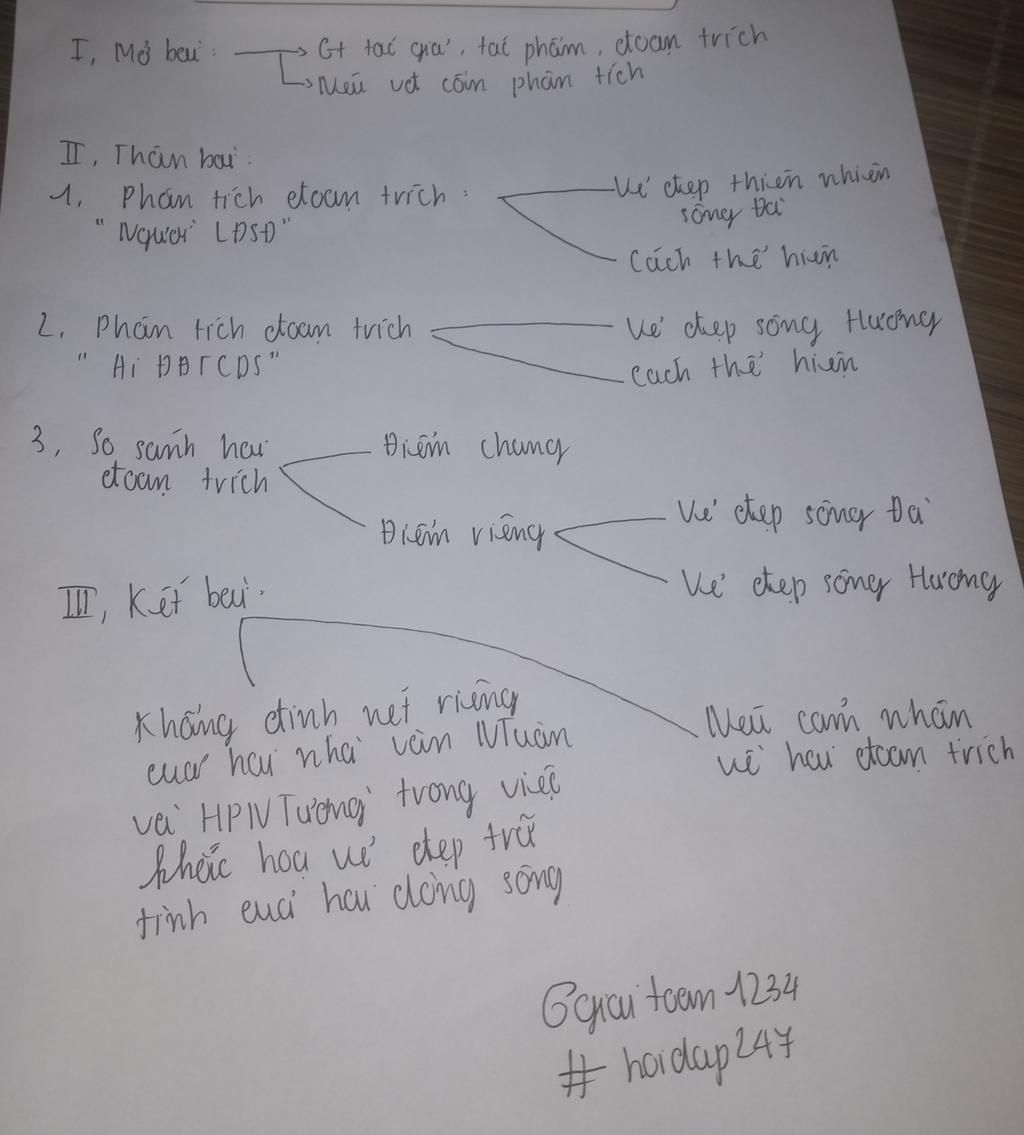 I, Mở bài: → Gt tác giả, tác phẩm, đoạn trích
→ Nêu vđ cần phân tích
II, Thân bài:
1, Phân tích đoạn trích:
"Người LĐSĐ"
Vẻ đẹp thiên nhiên
sông Đà
Cách thể hiện
2, Phân tích đoạn trích
"Ai ĐĐTCDS"
Vẻ đẹp sông Hương
Cách thể hiện
3, So sánh hai
đoạn trích
Điểm chung
Điểm riêng
Vẻ đẹp sông Đà
Vẻ đẹp sông Hương
III, Kết bài:
Khẳng định nét riêng
của hai nhà văn NTuân
và HPNTường trong việc
khắc hoạ vẻ đẹp trữ
tình của hai dòng sông
Nêu cảm nhận
về hai đoạn trích
Ggiaitoan1234
# hoidap247